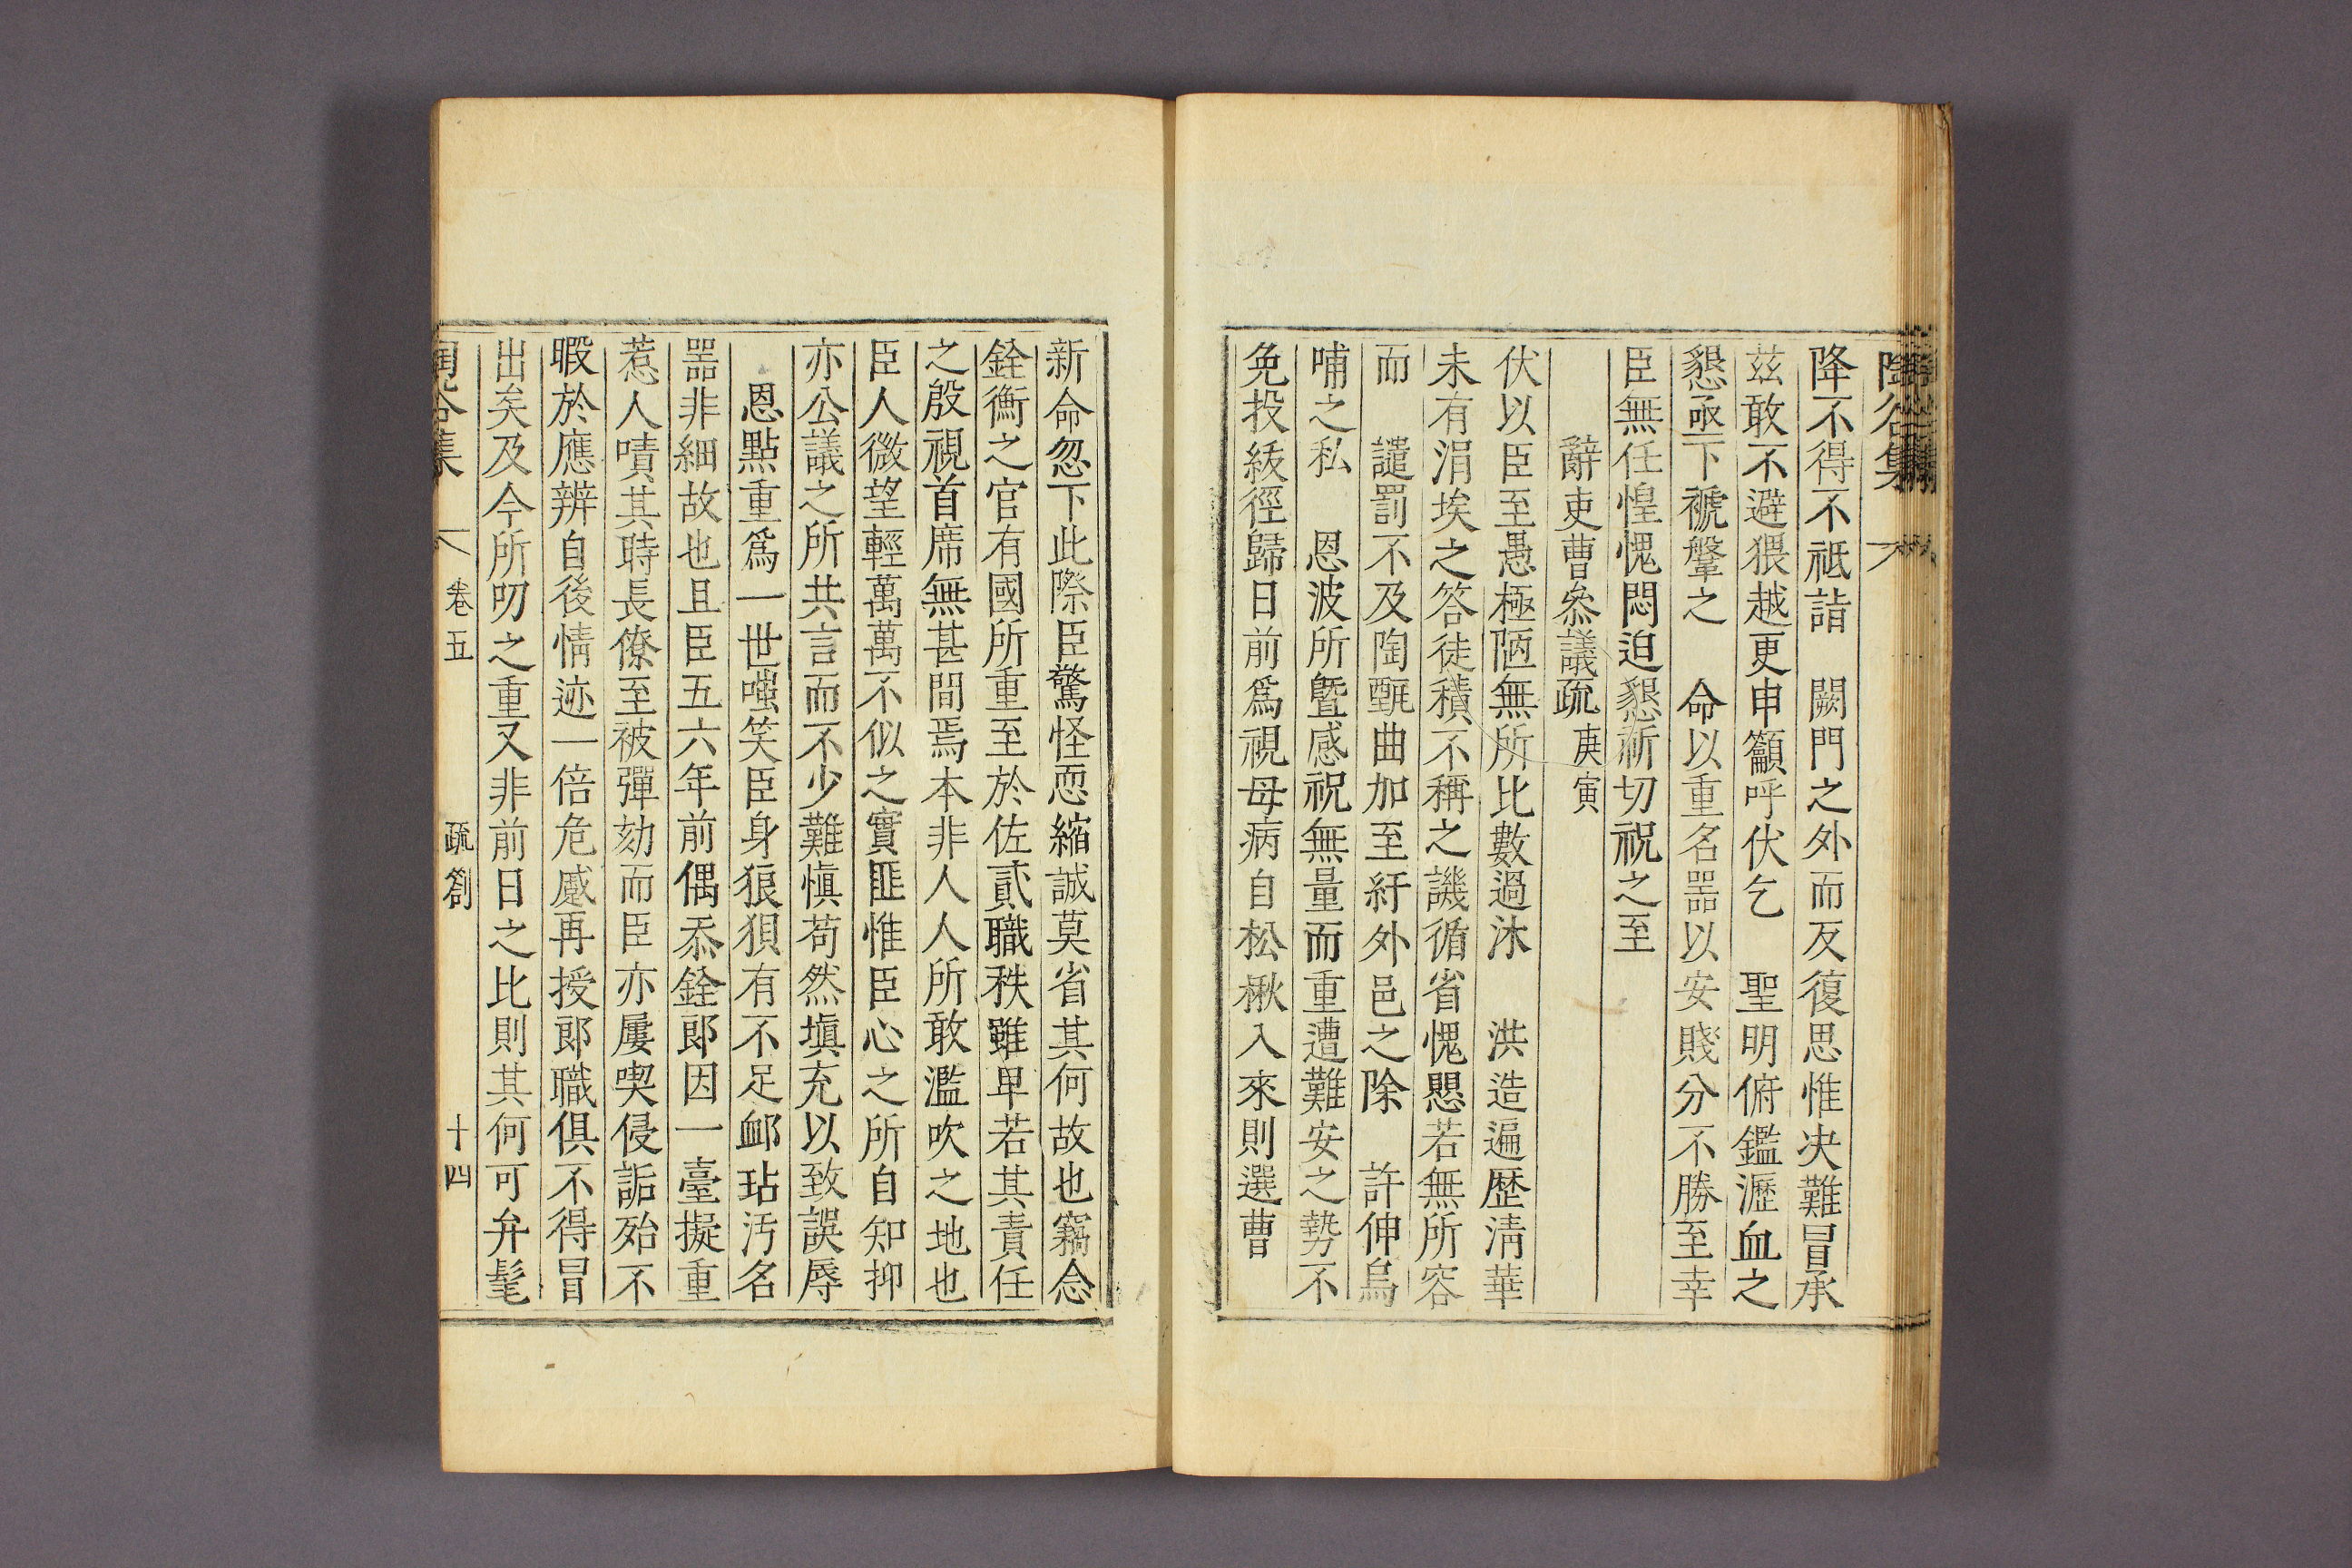 陶谷集
降不得不祗詣　闕門之外而反復思惟决難冒承
玆敢不避猥越更申籲呼伏乞　聖明俯鑑瀝血之
懇亟下褫鞶之　命以重名器以安賤分不勝至幸
臣無任惶愧悶迫懇祈切祝之至
辭吏曹叅議疏 庚寅
伏以臣至愚極陋無所比數過沐　洪造遍歷淸華
未有涓埃之答徒積不稱之譏循省愧懇若無所容
而　譴罰不及陶甄曲加至紆外邑之除　許伸烏
哺之私　恩波所曁感祝無量而重遭難安之勢不
免投紱徑歸日前爲視母病自松楸入來則選曹
新命忽下此際臣驚怪恧縮誠莫省其何故也竊念
銓衡之官有國所重至於佐貳職秩雖卑若其責任
之殷視首席無甚間焉本非人人所敢濫吹之地也
臣人微望輕萬萬不似之實匪惟臣心之所自知抑
亦公議之所共言而不少難愼苟然塡充以致誤辱
恩點重爲一世嗤笑臣身狼狽有不足䘏玷汚名
器非細故也且臣五六年前偶忝銓郞因一臺擬重
惹人嘖其時長僚至被彈劾而臣亦屢喫侵詬殆不
暇於應辨自後情迹一倍危蹙再授郞職俱不得冒
出矣及今所叨之重又非前日之比則其何可弁髦
陶谷集　卷五　疏箚　十四